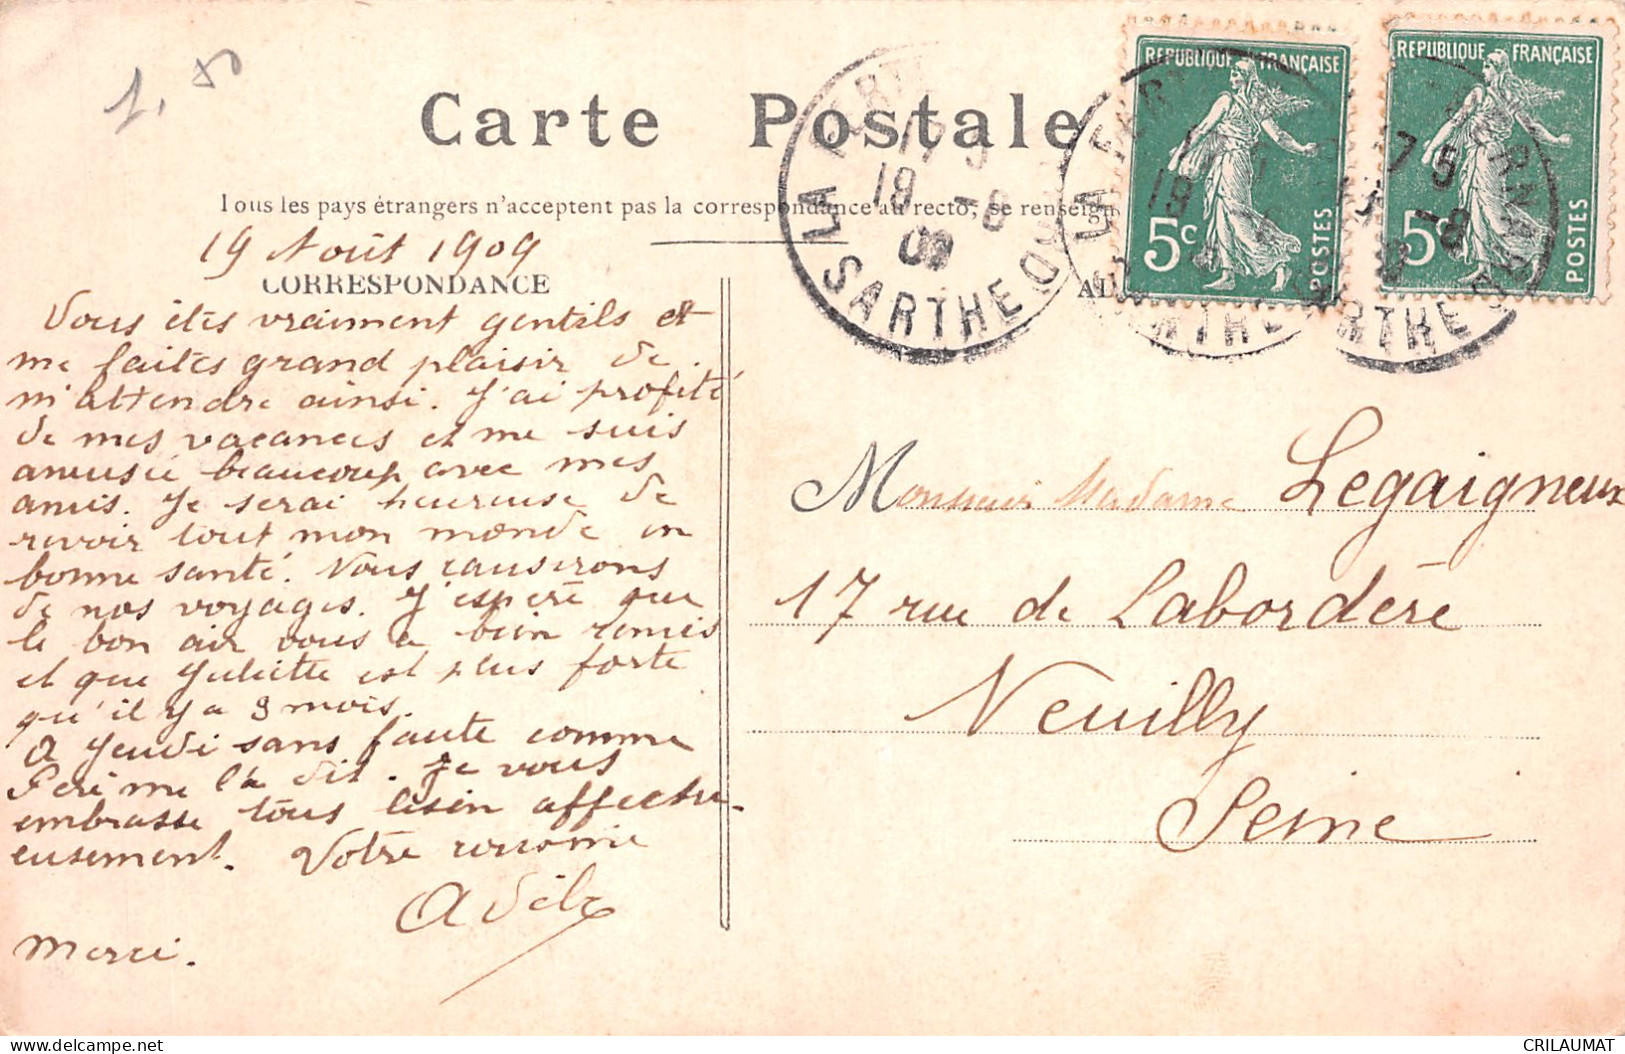 1,50
Carte Postale
Tous les pays étrangers n'acceptent pas la correspondance au recto, se renseign
19 Août 1909
CORRESPONDANCE
Vous êtes vraiment gentils et
me faites grand plaisir de
m'attendre ainsi. J'ai profité
de mes vacances et me suis
amusée beaucoup avec mes
amis. Je serai heureuse de
revoir tout mon monde en
bonne santé. Nous causerons
de nos voyages. J'espère que
le bon air vous a bien remis
et que Juliette est plus forte
qu'il y a 3 mois.
A Jeudi sans faute comme
me l'a dit. Je vous
embrasse tous bien affectu-
eusement. Votre
Adèle
Merci.
REPUBLIQUE FRANÇAISE
5c
POSTES
REPUBLIQUE FRANÇAISE
5c
POSTES
LA FERTE
17 5
19 -8
09
SARTHE
Monsieur Madame Legaigneux
17 rue de Labordère
Neuilly
Seine
CRILAUMAT